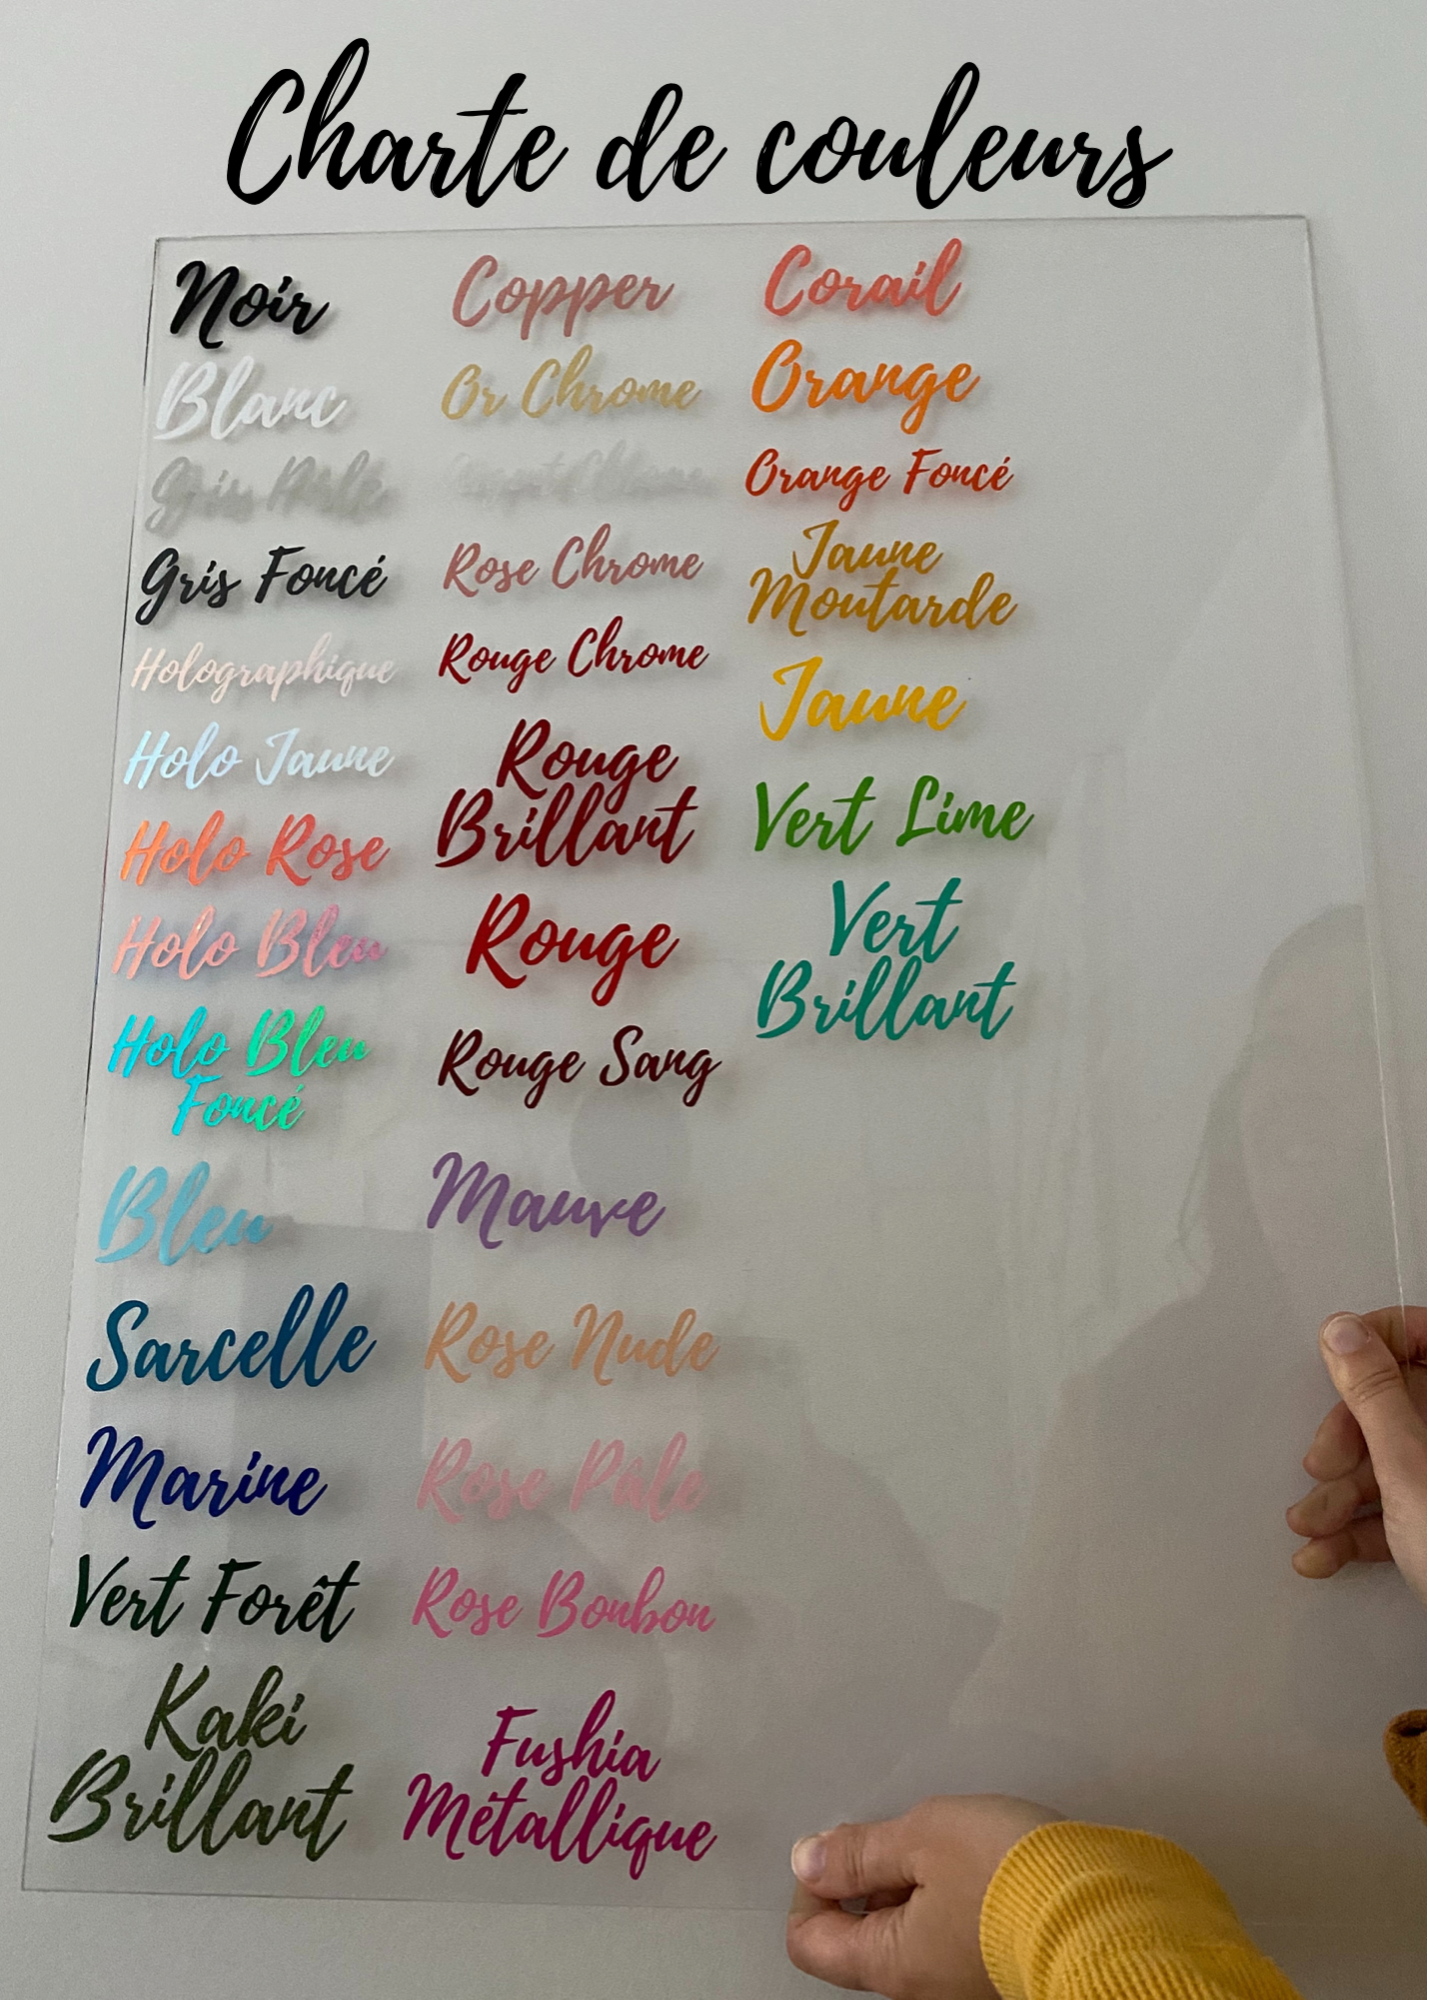 Charte de couleurs
Noir
Blanc
Gris Perle
Gris Foncé
Holographique
Holo Jaune
Holo Rose
Holo Bleu
Holo Bleu
Foncé
Bleu
Sarcelle
Marine
Vert Forêt
Kaki
Brillant
Copper
Or Chrome
Argent Chrome
Rose Chrome
Rouge Chrome
Rouge
Brillant
Rouge
Rouge Sang
Mauve
Rose Nude
Rose Pâle
Rose Bonbon
Fushia
Métallique
Corail
Orange
Orange Foncé
Jaune
Moutarde
Jaune
Vert Lime
Vert
Brillant